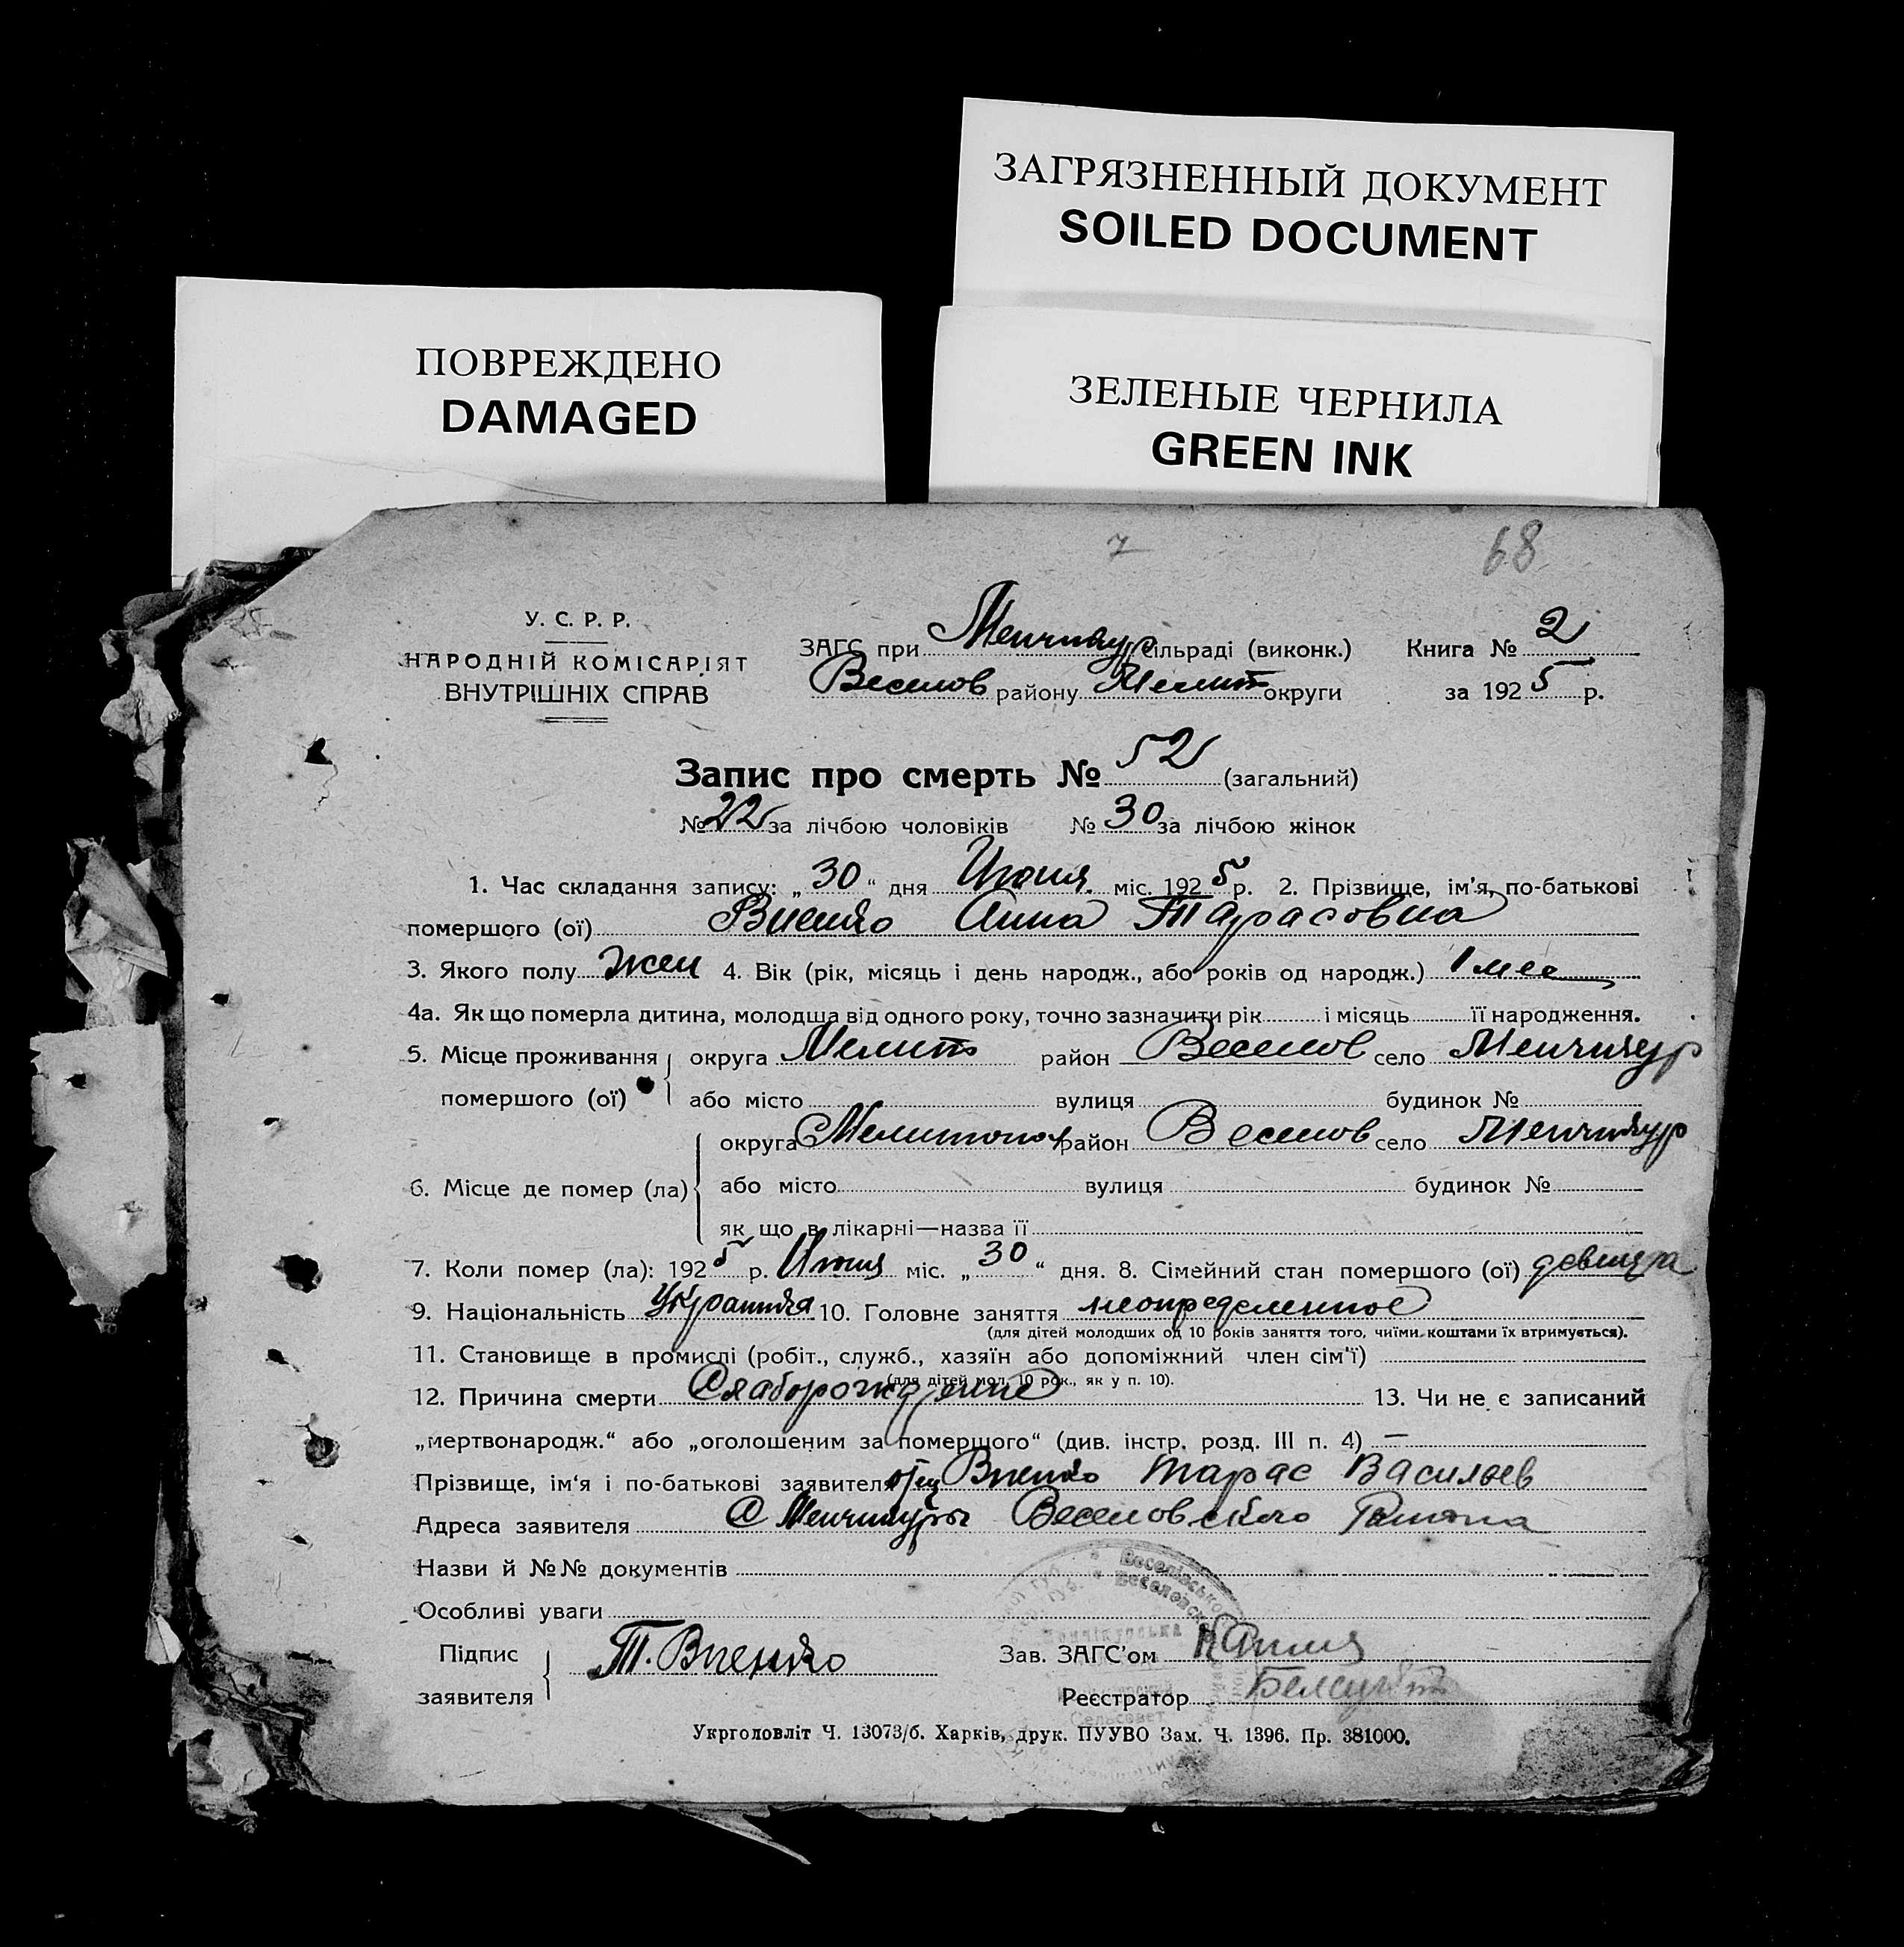 ЗАГРЯЗНЕННЫЙ ДОКУМЕНТ
SOILED DOCUMENT
ПОВРЕЖДЕНО
DAMAGED
ЗЕЛЕНЫЕ ЧЕРНИЛА
GREEN INK
7 68
У. С. Р. Р.
НАРОДНІЙ КОМІСАРІЯТ
ВНУТРІШНІХ СПРАВ
ЗАГС при Менчикур сільраді (виконк.) Книга № 2
Веселов району Мелит округи за 1925 р.
Запис про смерть № 52 (загальний)
№ 22 за лічбою чоловіків № 30 за лічбою жінок
1. Час складання запису: „30“ дня Июня міс. 1925 р. 2. Прізвище, ім'я, по-батькові
помершого (ої) Анна Тарасовна
3. Якого полу Жен 4. Вік (рік, місяць і день народж., або років од народж.) 1 мес
4а. Як що померла дитина, молодша від одного року, точно зазначити рік і місяць її народження.
5. Місце проживання помершого (ої) округа Мелит район Веселов село Менчикур
або місто вулиця будинок №
6. Місце де помер (ла) округа Мелитопол район Веселов село Менчикур
або місто вулиця будинок №
як що в лікарні—назва її
7. Коли помер (ла): 1925 р. Июня міс. „30“ дня. 8. Сімейний стан помершого (ої) девица
9. Національність 10. Головне заняття неопределенное
(для дітей молодших од 10 років заняття того, чиїми коштами їх втримується).
11. Становище в промислі (робіт., служб., хазяїн або допоміжний член сім'ї)
(для дітей мол. 10 рок., як у п. 10).
12. Причина смерти Слаборождение 13. Чи не є записаний
„мертвонародж.“ або „оголошеним за помершого“ (див. інстр. розд. III п. 4) —
Прізвище, ім'я і по-батькові заявителя отец Тарас Васильев
Адреса заявителя С Менчикуры Веселовского Района
Назви й №№ документів
Особливі уваги
Підпис заявителя Т. Зав. ЗАГС'ом
Реєстратор
Сельсовет
Укрголовліт Ч. 13073/б. Харків, друк. ПУУВО Зам. Ч. 1396. Пр. 381000.